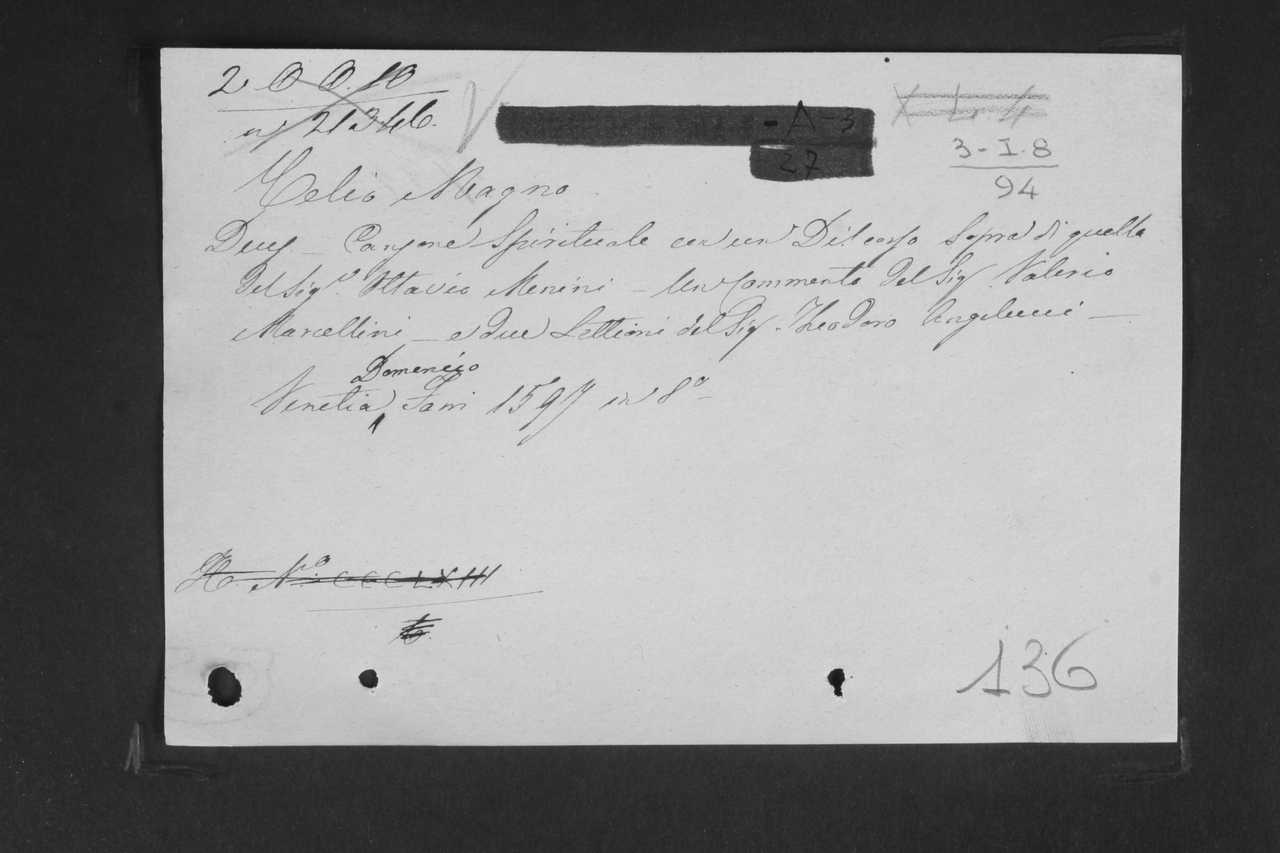 2 0 0. 10
nj 21346.
- A - 3
27
X L. 4
3 - I. 8
94
Celio Magno
Deus — Canzone Spirituale con un Discorso sopra di quella
del Sigr. Ottavio Menini — Un Commento del Sig. Valerio
Marcellini — e due Lettioni del Sig. Theodoro Angelucci —
Domenico
Venetia, Farri 1597 in 8º
No. CCCLXIII
136